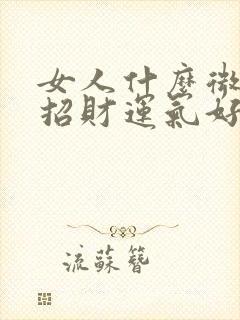 女人什麼微
招財運氣好
流蘇簪